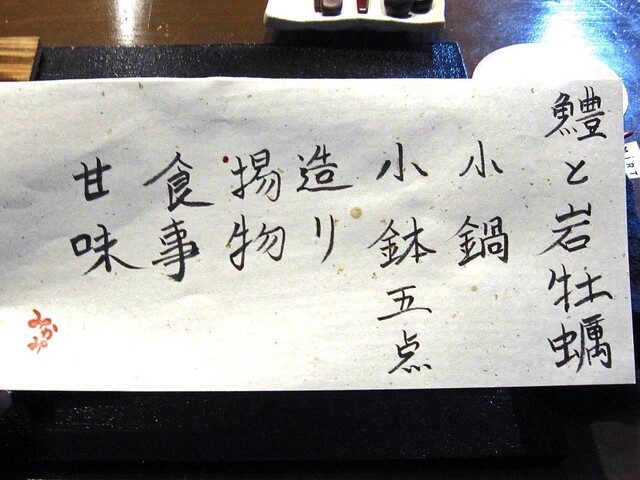 鱧と岩牡蠣
小鍋
小鉢五点
造り
揚物
食事
甘味